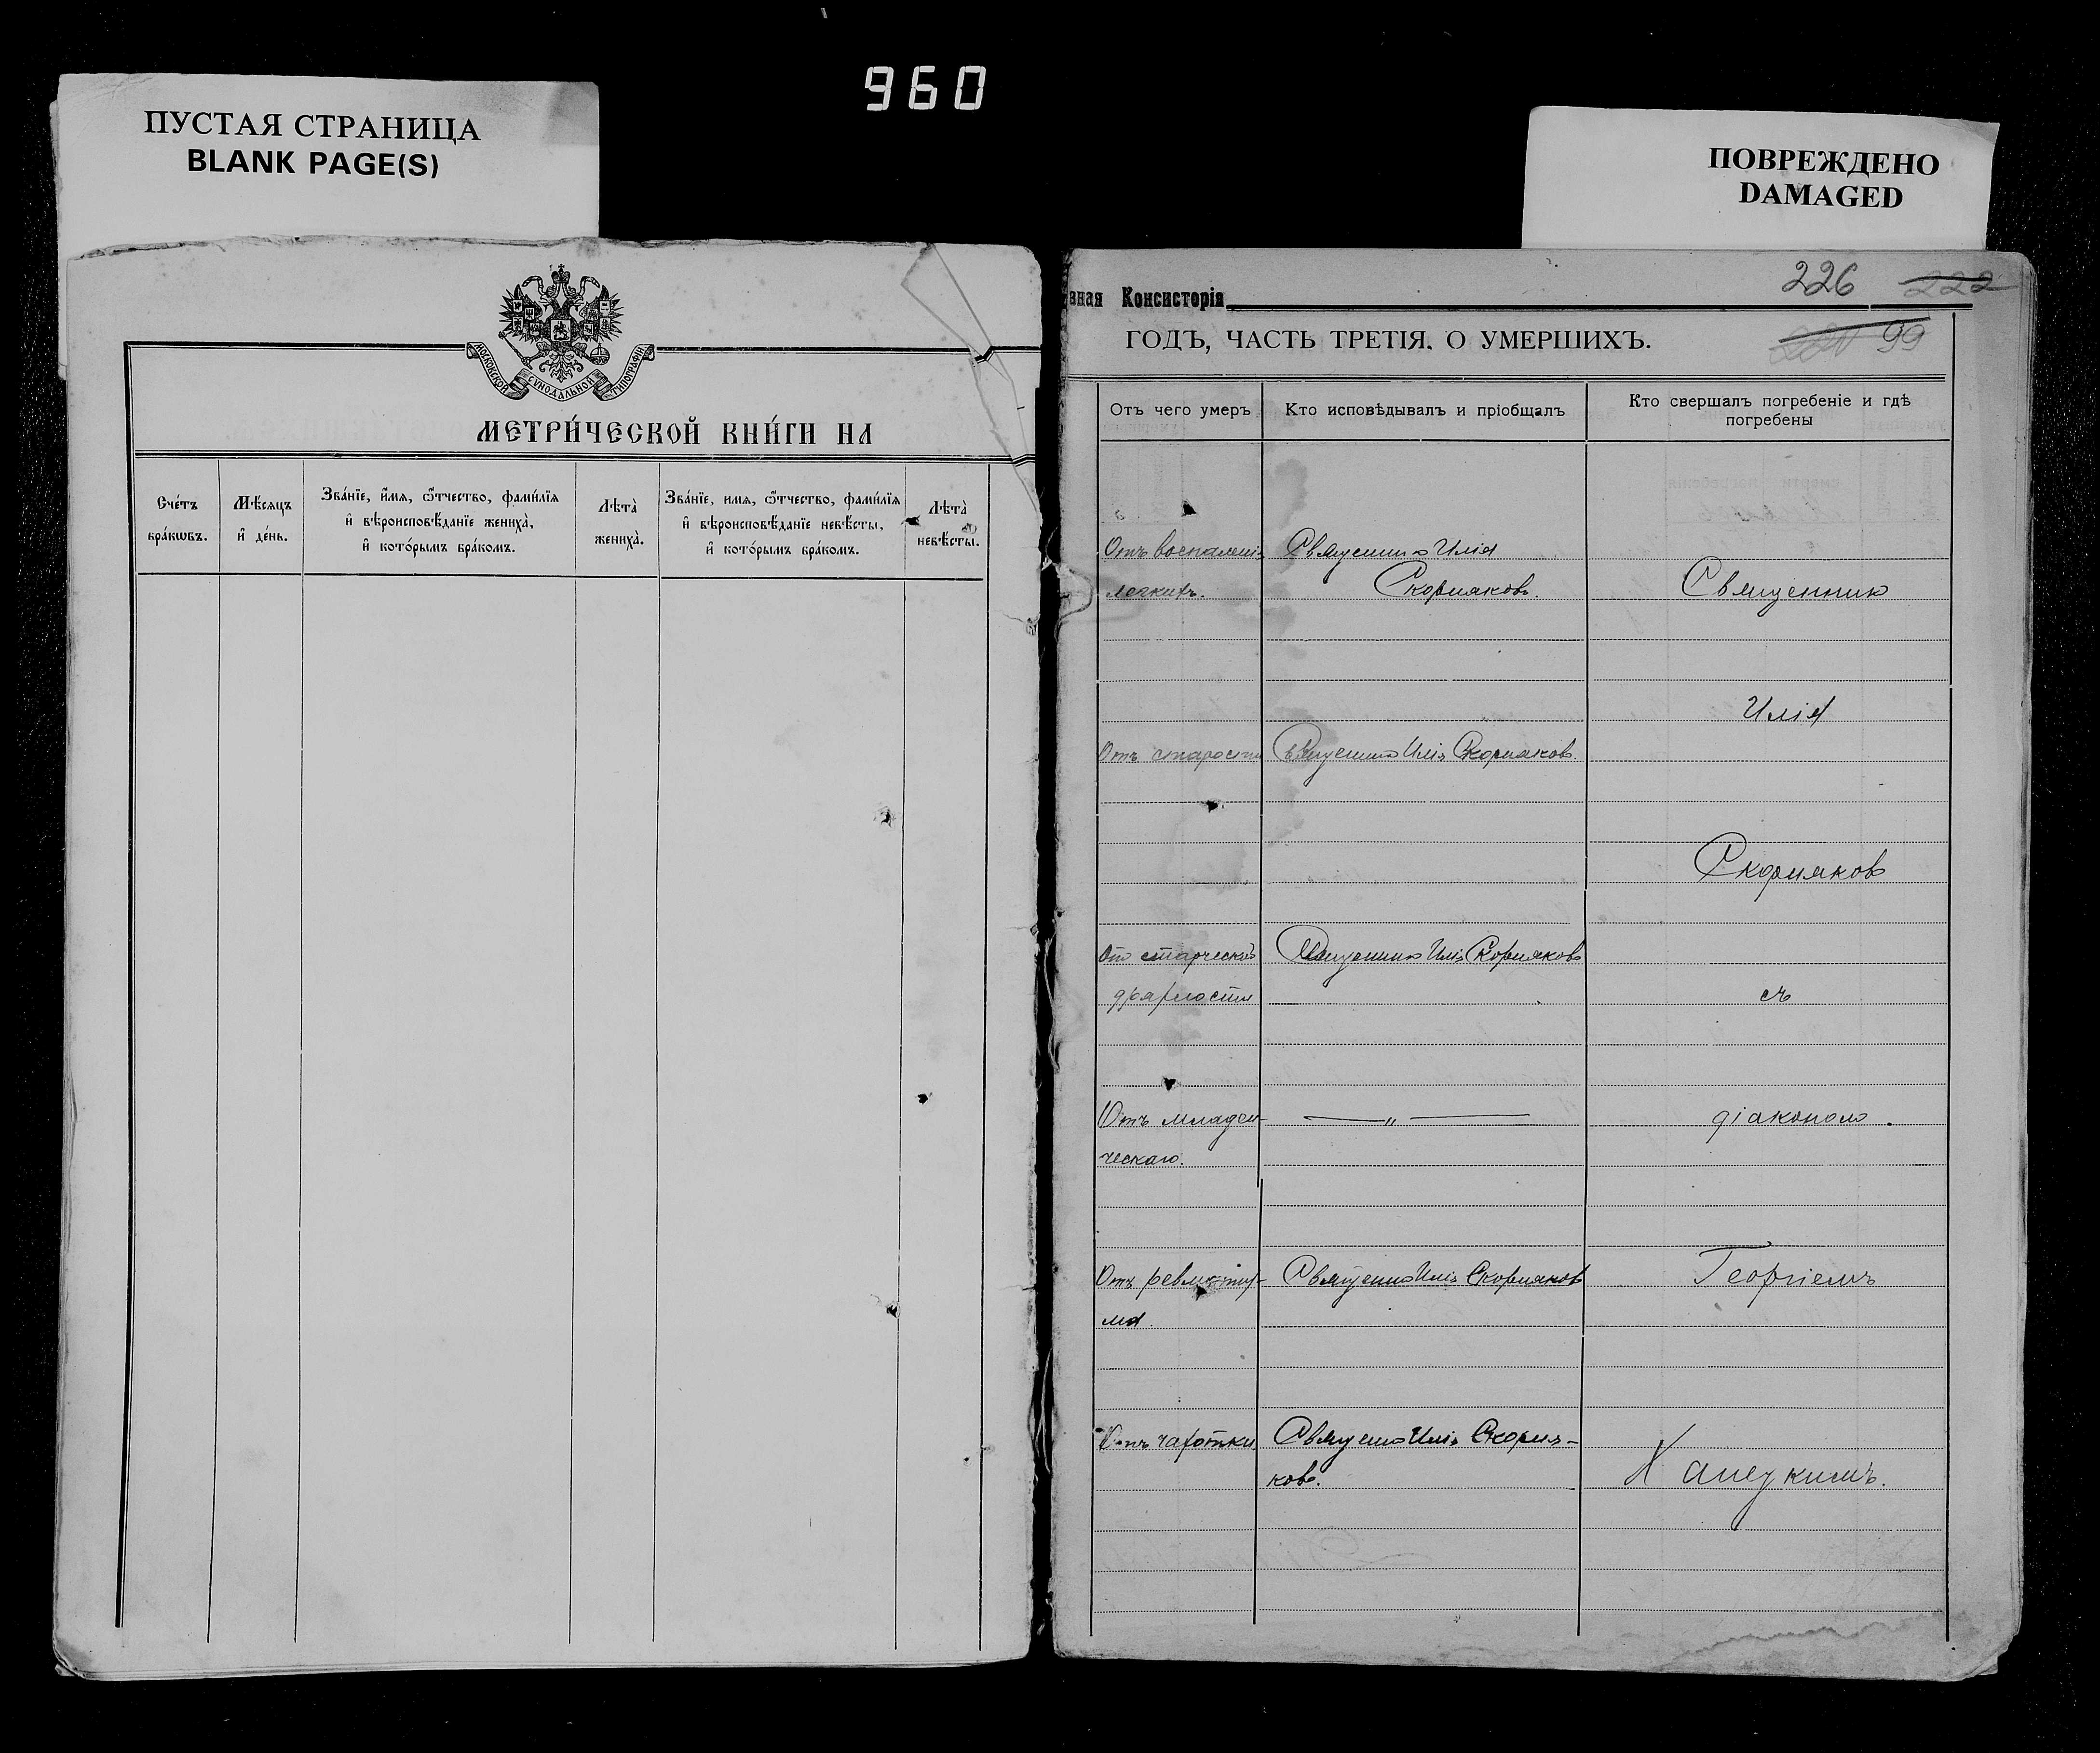 960
ПУСТАЯ СТРАНИЦА
BLANK PAGE(S)
МОСКОВСКОЙ СѴНОДАЛЬНОЙ ТИПОГРАФІИ
МЕТРИ́ЧЕСКОЙ КНИ́ГИ НА
Сче́тъ
бра́кѡвъ.
Мѣ́сяцъ
и҆ де́нь.
Зва́нїе, и҆́мя, ѻ҆́тчество, фами́лїя
и҆ вѣроисповѣ́данїе жениха̀,
и҆ кото́рымъ бра́комъ.
Лѣта̀
жениха̀.
Зва́нїе, имя, ѻ҆́тчество, фами́лїя
и҆ вѣроисповѣ́данїе невѣ́сты,
и҆ кото́рымъ бра́комъ.
Лѣта̀
невѣ́сты.
ПОВРЕЖДЕНО
DAMAGED
226 222
вная Консисторія
ГОДЪ, ЧАСТЬ ТРЕТІЯ. О УМЕРШИХЪ.
99
Отъ чего умеръ
Кто исповѣдывалъ и пріобщалъ
Кто свершалъ погребеніе и гдѣ
погребены
Отъ воспаленія
легкихъ.
Священникъ Илія
Скорняковъ.
Священникъ
Илія
Отъ старости
Священникъ Илія Скорняковъ.
Скорняковъ
Отъ старческой
дряхлости
Священникъ Илія Скорняковъ
съ
Отъ младен-
ческаго.
— „ —
діакономъ.
Отъ ревматиз-
ма.
Священникъ Илія Скорняковъ
Георгіемъ
Отъ чахотки
Священникъ Илія Скорня-
ковъ.